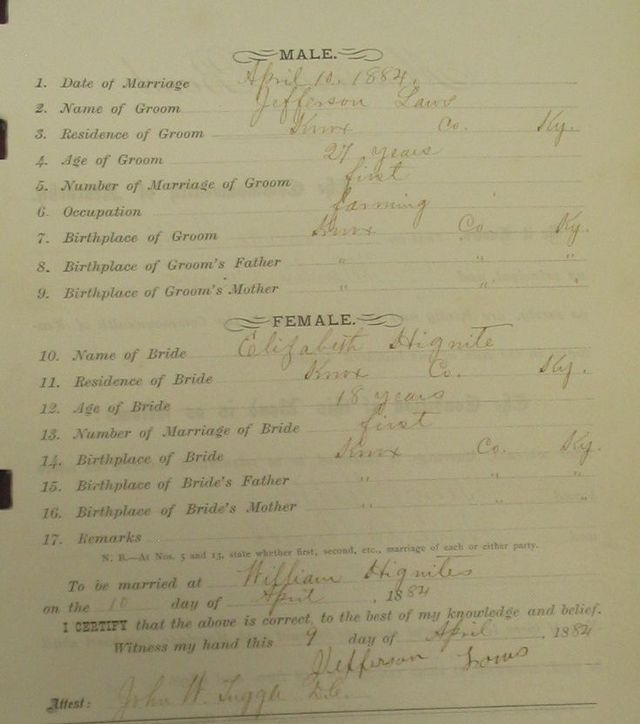 MALE.
1. Date of Marriage April 10, 1884.
2. Name of Groom Jefferson Laws
3. Residence of Groom Knox Co. Ky.
4. Age of Groom 27 years
5. Number of Marriage of Groom first
6. Occupation farming
7. Birthplace of Groom Knox Co. Ky.
8. Birthplace of Groom's Father " " "
9. Birthplace of Groom's Mother " " "
FEMALE.
10. Name of Bride Elizabeth Hignite
11. Residence of Bride Knox Co. Ky.
12. Age of Bride 18 years
13. Number of Marriage of Bride first
14. Birthplace of Bride Knox Co. Ky.
15. Birthplace of Bride's Father " " "
16. Birthplace of Bride's Mother " " "
17. Remarks
N. B.—At Nos. 5 and 13, state whether first, second, etc., marriage of each or either party.
To be married at William Hignites
on the 10 day of April, 1884
I CERTIFY that the above is correct, to the best of my knowledge and belief.
Witness my hand this 9 day of April, 1884
Jefferson Laws
Attest: John W. Tuggle D.C.